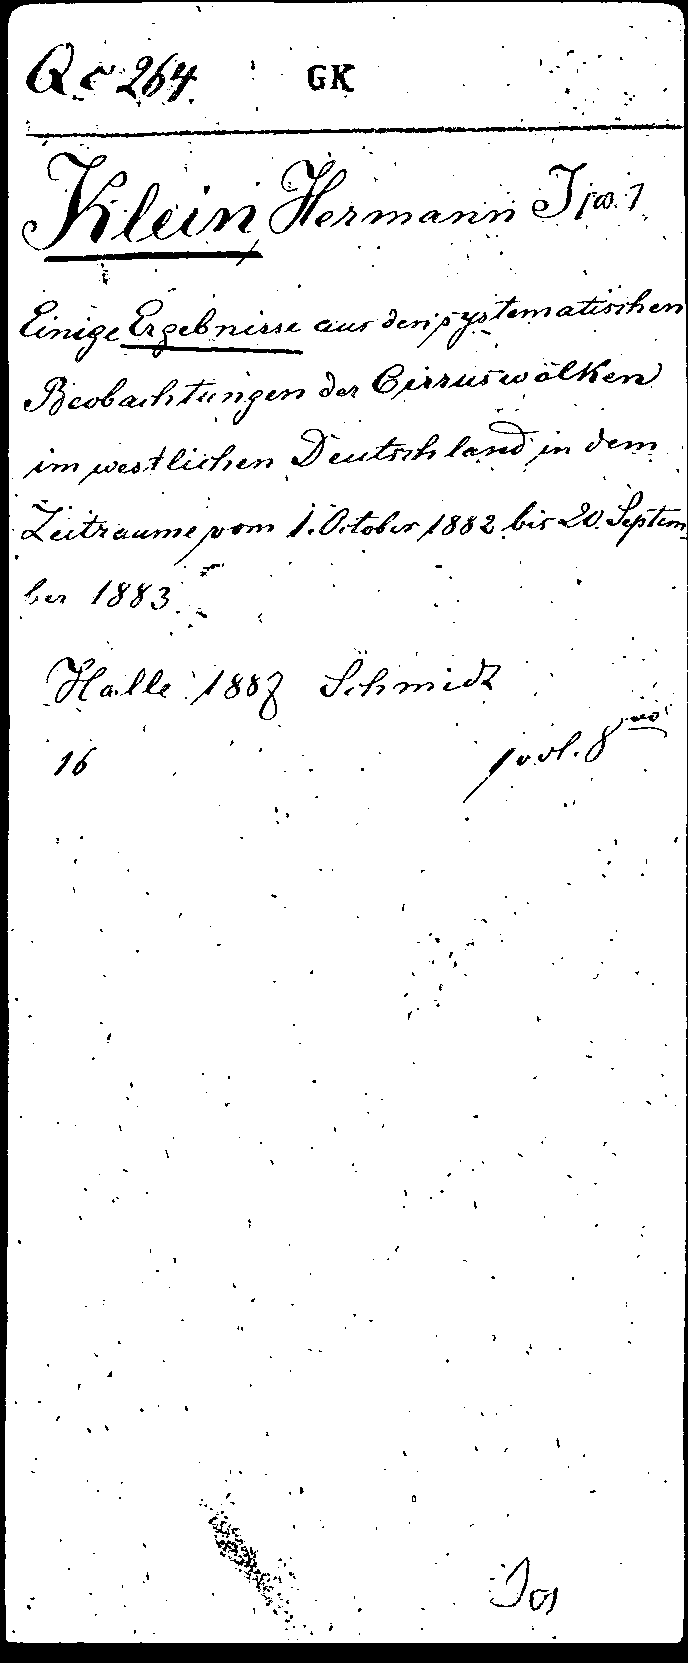 Qc 264. GK
Klein, Hermann J
Einige Ergebnisse aus den systematischen
Beobachtungen der Cirruswolken
im westlichen Deutschland in dem
Zeitraume vom 1. October 1882 bis 20. Septem
ber 1883
Halle 188 Schmidt
16 1 vol. 8 vo